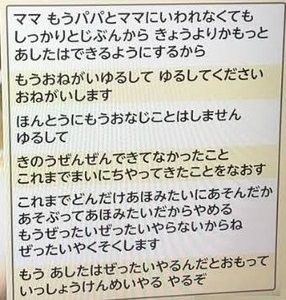 ママ もうパパとママにいわれなくても
しっかりとじぶんから きょうよりかもっと
あしたはできるようにするから
もうおねがいゆるして ゆるしてください
おねがいします
ほんとうにもうおなじことはしません
ゆるして
きのうぜんぜんできてなかったこと
これまでまいにちやってきたことをなおす
これまでどんだけあほみたいにあそんだか
あそぶってあほみたいだからやめる
もうぜったいぜったいやらないからね
ぜったいやくそくします
もう あしたはぜったいやるんだとおもって
いっしょうけんめいやる やるぞ